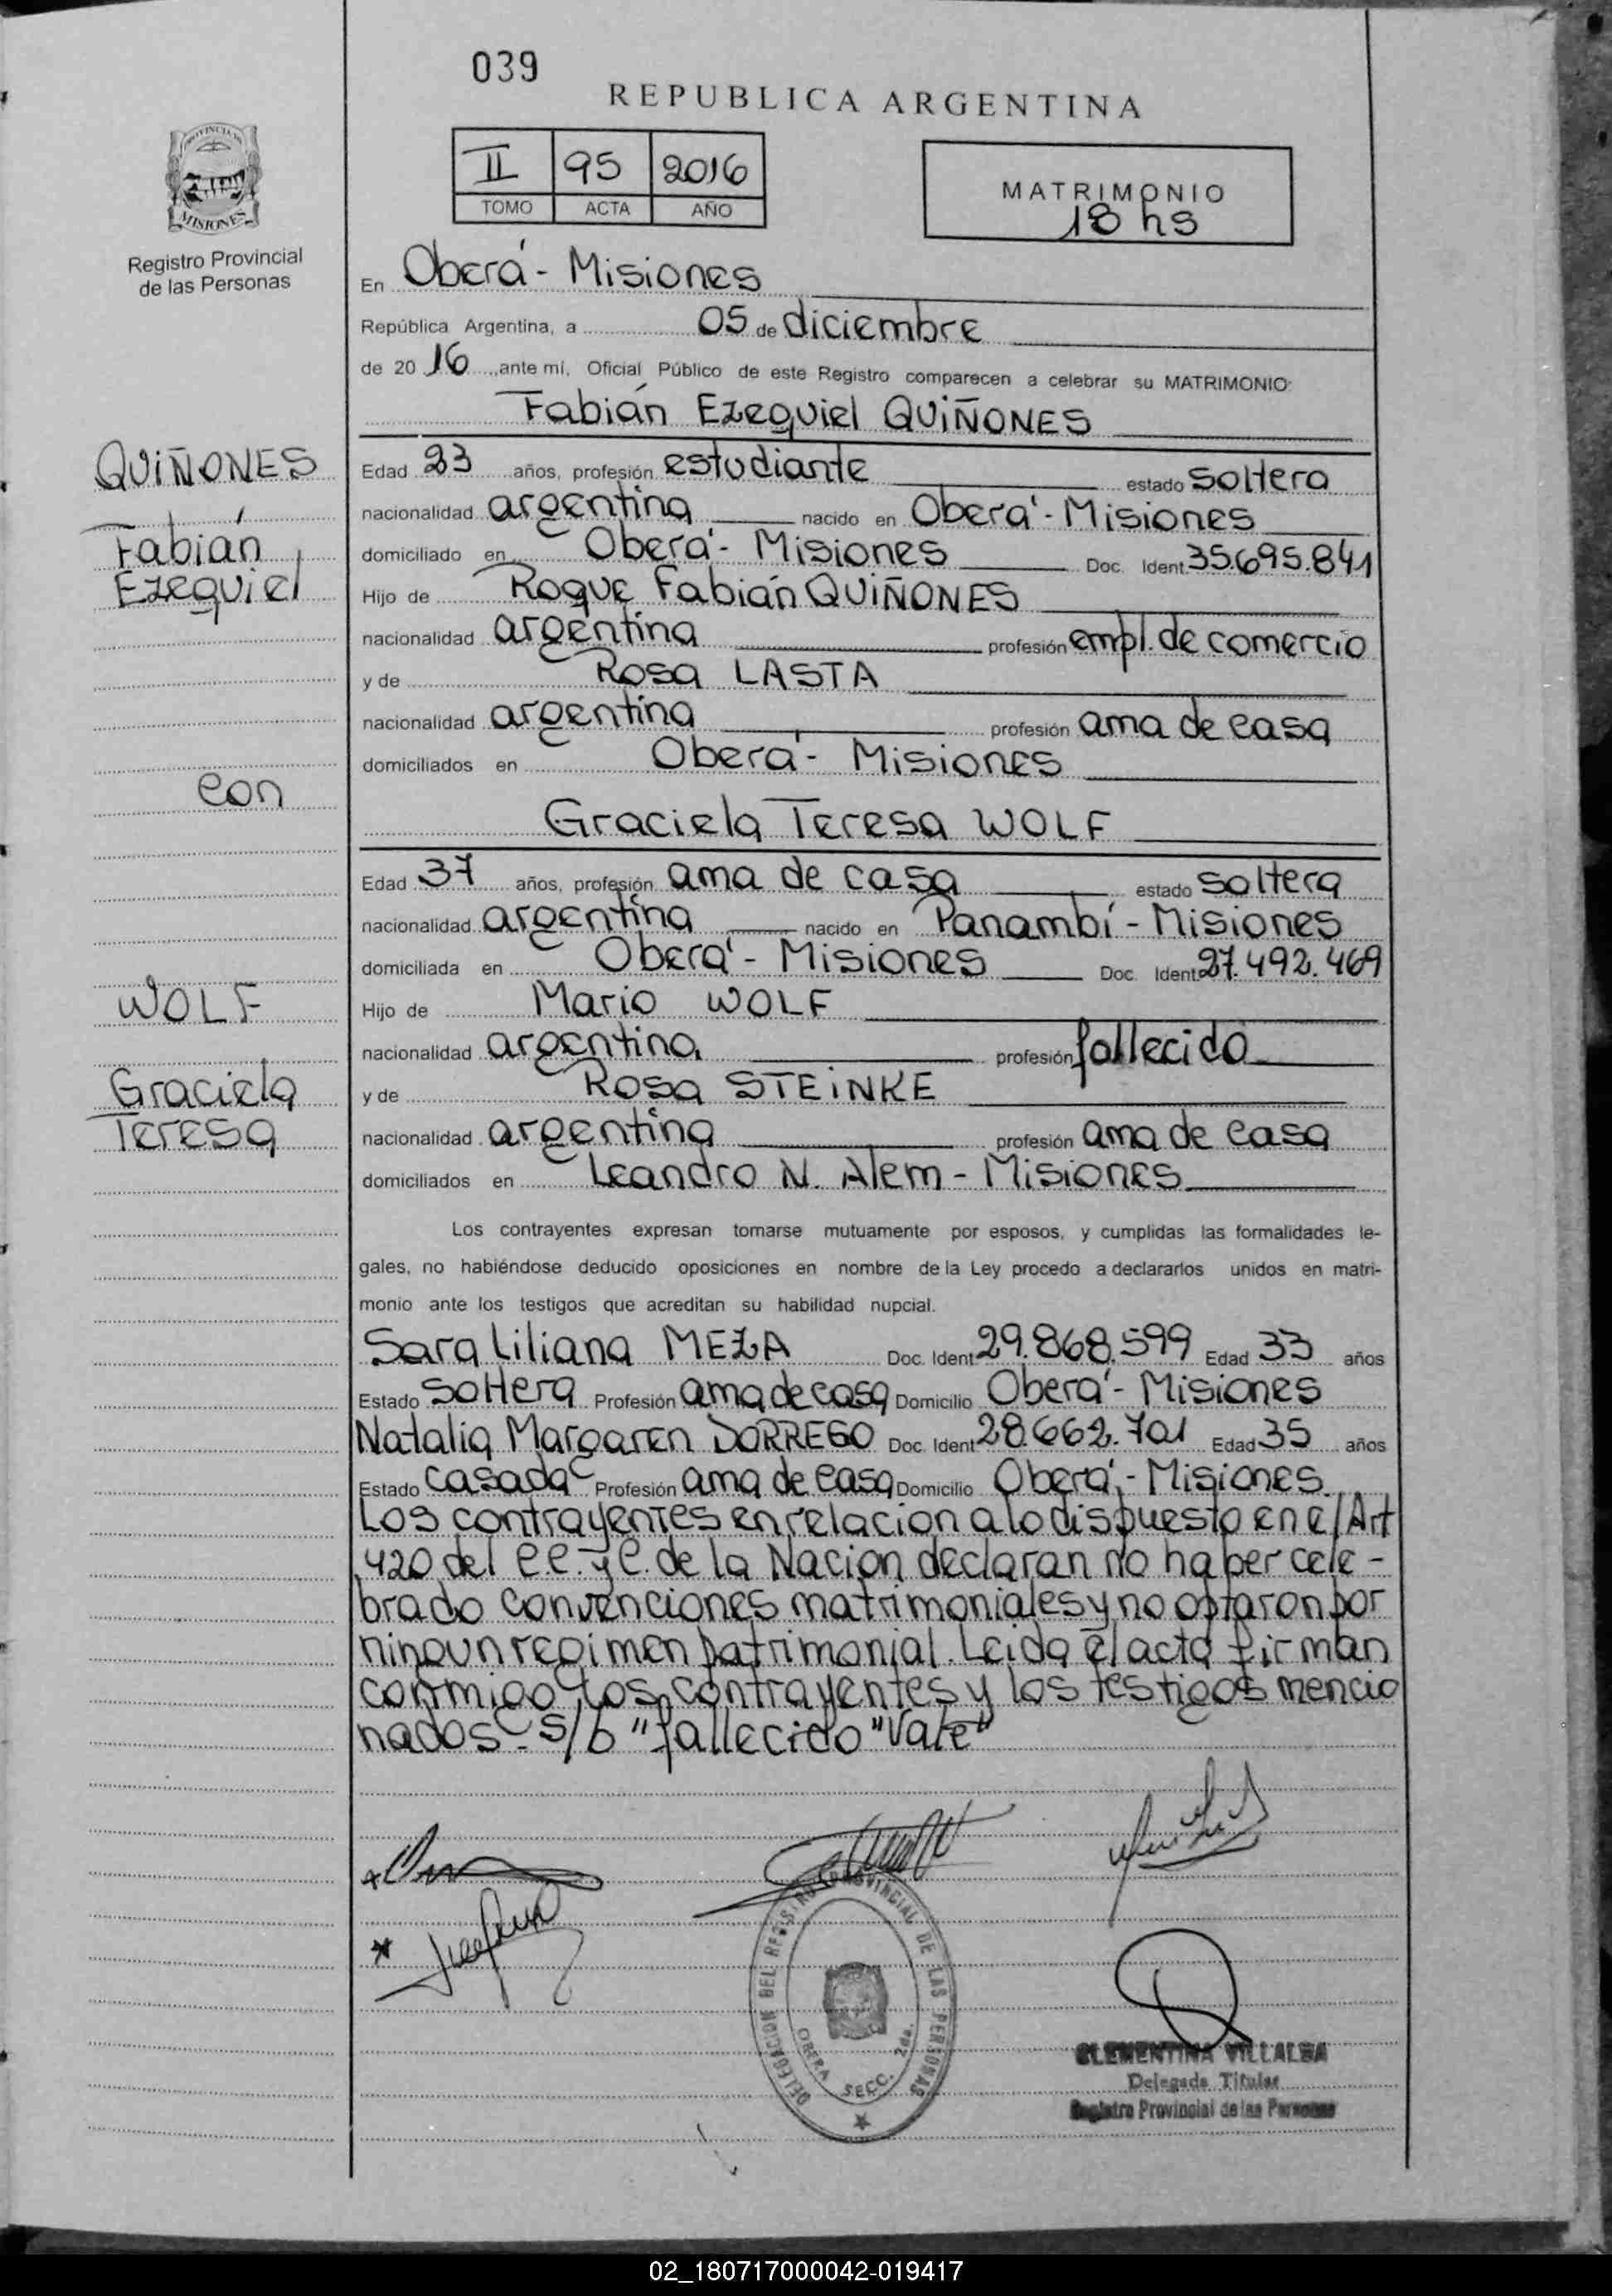 039
REPUBLICA ARGENTINA
II 95 2016
TOMO ACTA AÑO
MATRIMONIO
18 hs
PROVINCIA DE
MISIONES
Registro Provincial
de las Personas
En Oberá - Misiones
República Argentina, a 05 de diciembre
de 2016, ante mi, Oficial Público de este Registro comparecen a celebrar su MATRIMONIO:
Fabián Ezequiel QUIÑONES
QUIÑONES
Fabián
Ezequiel
Edad 23 años, profesión estudiante estado soltero
nacionalidad argentina nacido en Oberá - Misiones
domiciliado en Oberá - Misiones Doc. Ident. 35.695.841
Hijo de Roque Fabián QUIÑONES
nacionalidad argentina profesión empl. de comercio
y de Rosa LASTA
nacionalidad argentina profesión ama de casa
domiciliados en Oberá - Misiones
con
Graciela Teresa WOLF
Edad 37 años, profesión ama de casa estado soltera
nacionalidad argentina nacido en Panambí - Misiones
domiciliada en Oberá - Misiones Doc. Ident. 27.492.469
WOLF
Graciela
Teresa
Hijo de Mario WOLF
nacionalidad argentina profesión fallecido
y de Rosa STEINKE
nacionalidad argentina profesión ama de casa
domiciliados en Leandro N. Alem - Misiones
Los contrayentes expresan tomarse mutuamente por esposos, y cumplidas las formalidades le-
gales, no habiéndose deducido oposiciones en nombre de la Ley procedo a declararlos unidos en matri-
monio ante los testigos que acreditan su habilidad nupcial.
Sara Liliana MEZA Doc. Ident. 29.868.599 Edad 33 años
Estado soltera Profesión ama de casa Domicilio Oberá - Misiones
Natalia Margaren DORREGO Doc. Ident. 28.662.701 Edad 35 años
Estado casada Profesión ama de casa Domicilio Oberá - Misiones
Los contrayentes en relacion a lo dispuesto en el Art
420 del C.C. y C. de la Nacion declaran no haber cele-
brado convenciones matrimoniales y no optaron por
ningun regimen patrimonial. Leida el acta firman
conmigo, los contrayentes y los testigos mencio
nados - s/b "fallecido "Vale"
DELEGACION DEL REGISTRO PROVINCIAL DE LAS PERSONAS
OBERA SECC. 2da.
CLEMENTINA VILLALBA
Delegada Titular
Registro Provincial de las Personas
02_180717000042-019417